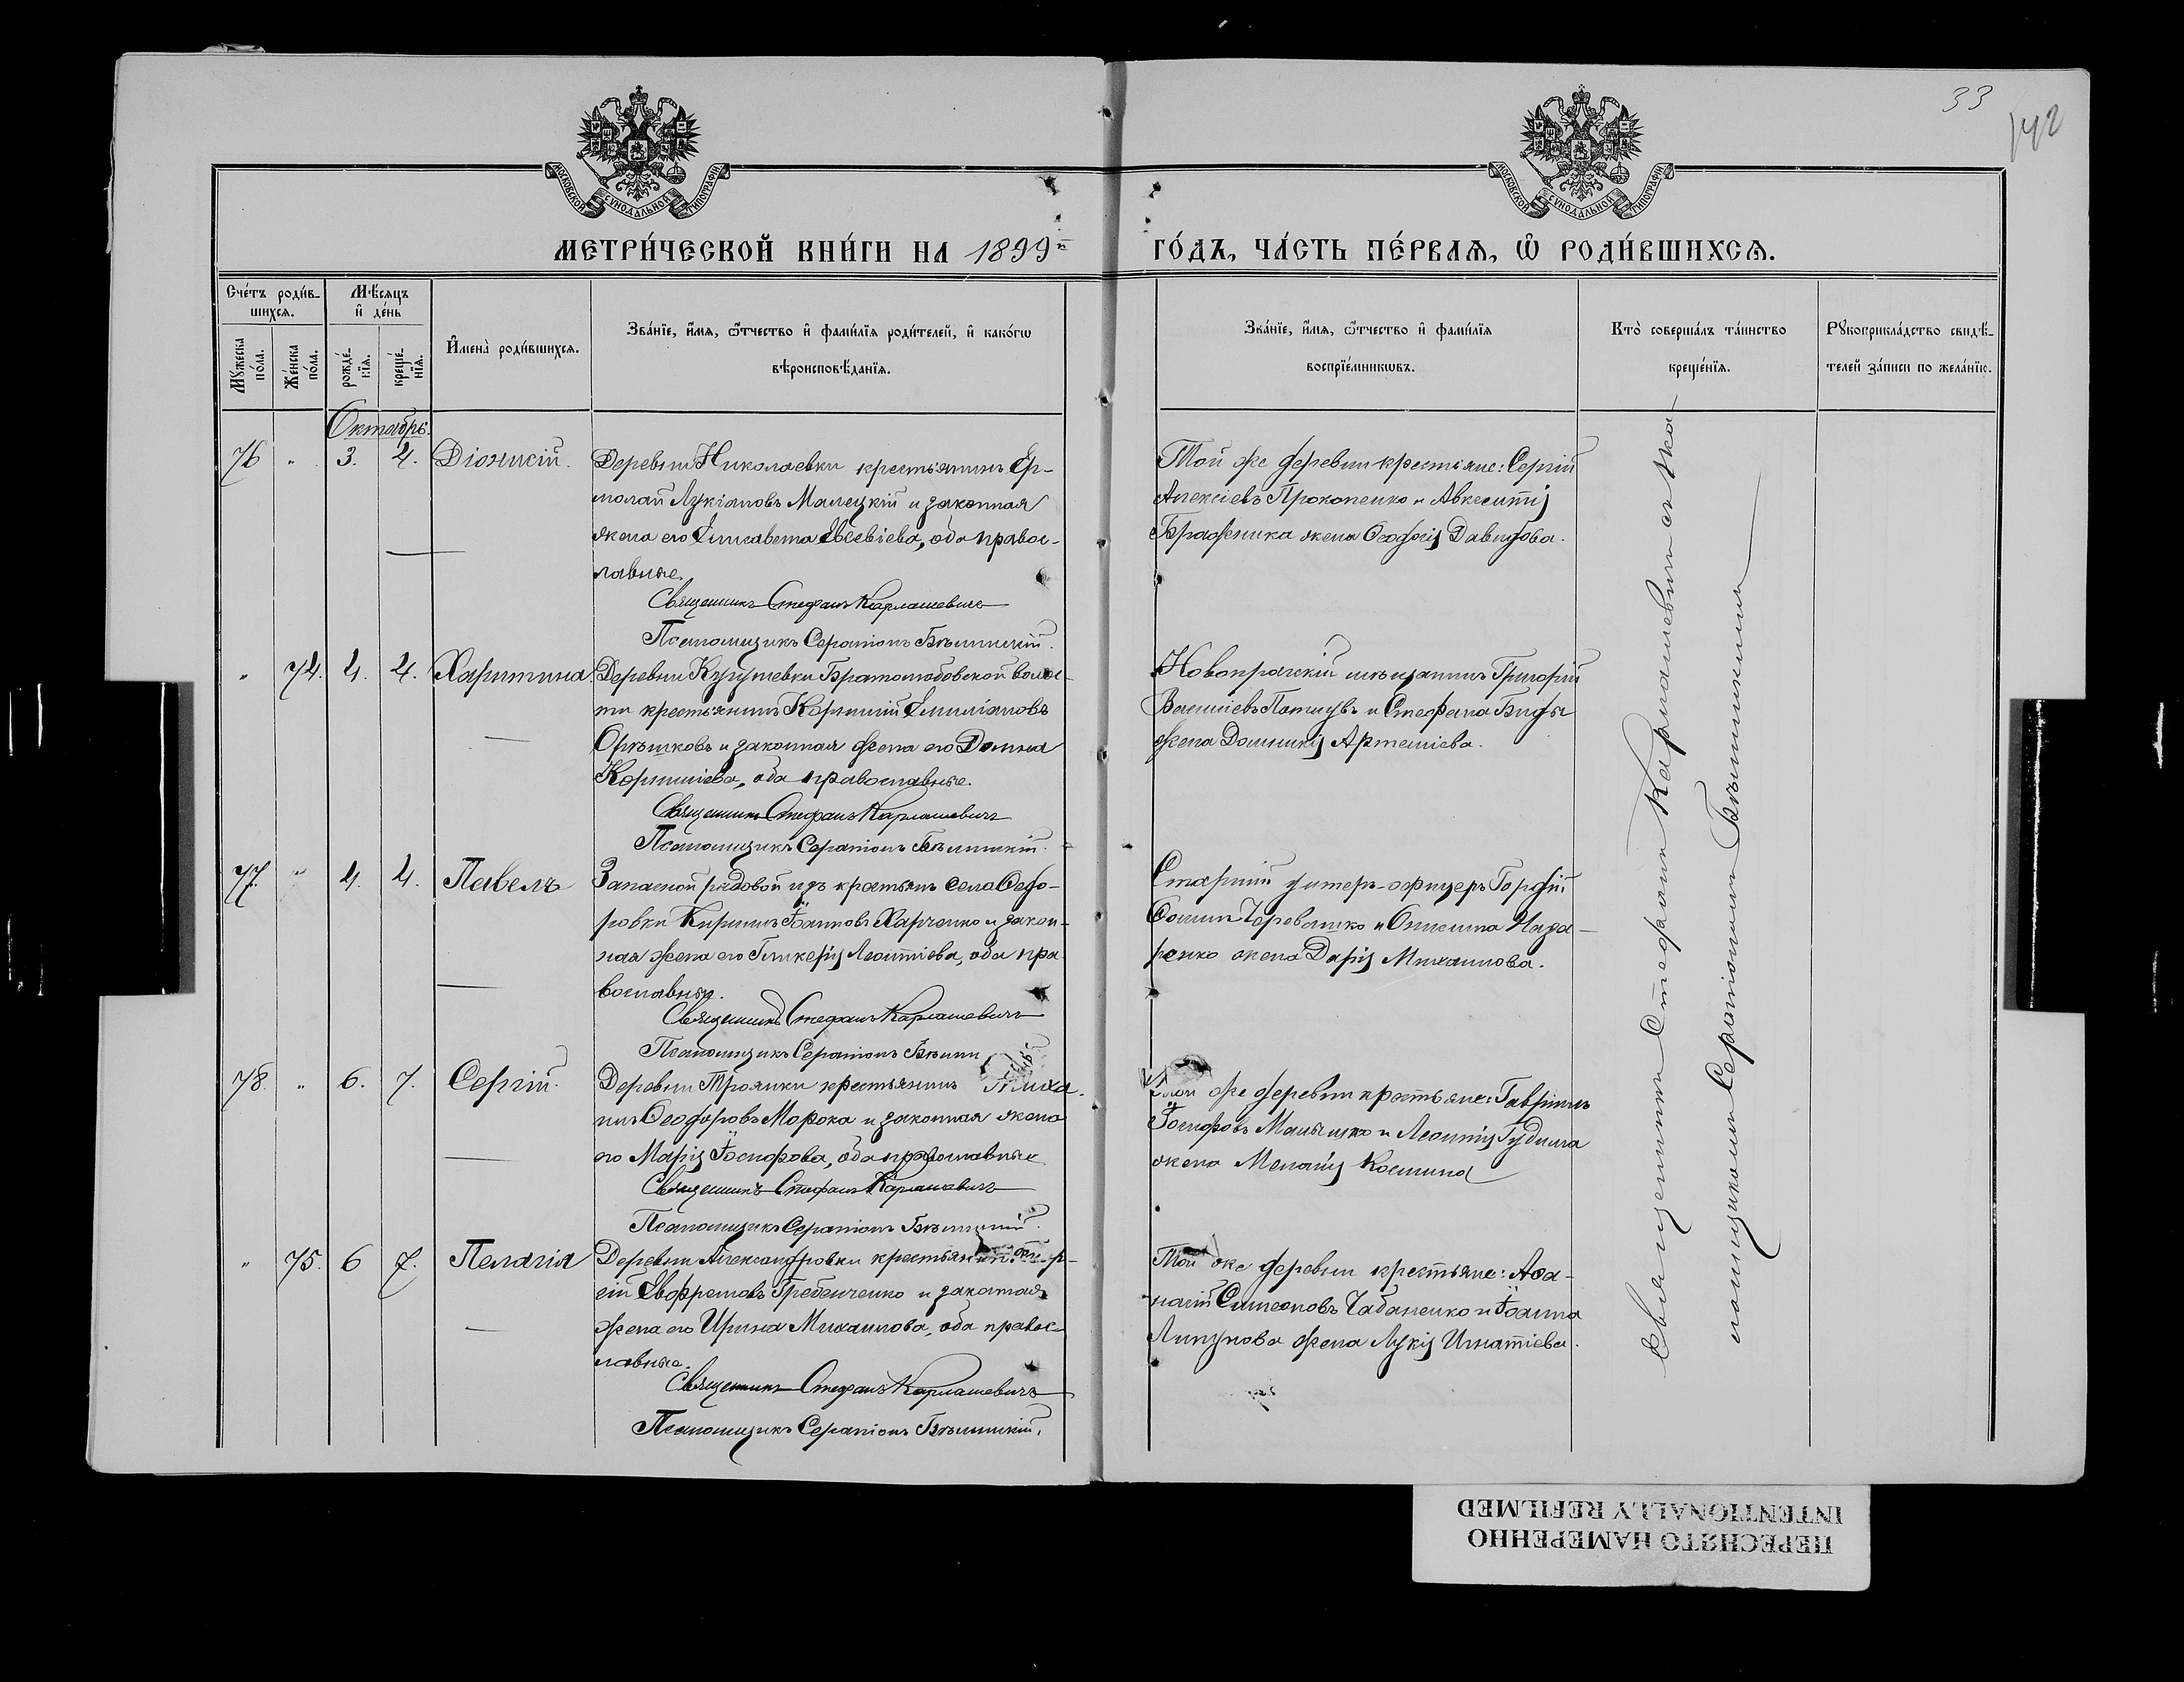 33
142
МОСКОВСКОЙ СѴНОДАЛЬНОЙ ТИПОГРАФІИ
МОСКОВСКОЙ СѴНОДАЛЬНОЙ ТИПОГРАФІИ
МЕТРИ́ЧЕСКОЙ КНИ́ГИ НА 1899й ГО́ДЪ, ЧА́СТЬ ПЕ́РВАѦ, Ѡ҆ РОДИ́ВШИХСѦ.
Сче́тъ роди́в-
шихсѧ.
Мꙋжеска по́ла.
Же́нска по́ла.
Мѣ́сѧцъ
и҆ де́нь
рожде́-
нїѧ.
креще́-
нїѧ.
И҆мена̀ роди́вшихсѧ.
Зва́нїе, и҆́мѧ, ѻ҆́тчество и҆ фами́лїѧ роди́телей, и҆ како́гѡ
вѣроисповѣ́данїѧ.
Зва́нїе, и҆́мѧ, ѻ҆́тчество и҆ фами́лїѧ
воспрїе́мникѡвъ.
Кто̀ соверша́лъ та́инство
креще́нїѧ.
Рꙋкоприкла́дство свидѣ́-
телей за́писи по жела́нїю.
Октябрь.
76 " 3. 4. Діонисій.
Деревни Николаевки крестьянинъ Ер-
молай Лукіановъ Малецкій и законная
жена его Елисавета Евсевіева, оба правос-
лавные.
Священникъ Стефанъ Карлашевичъ
Псаломщикъ Серапіонъ Бѣлинскій.
Той же деревни крестьяне: Сергій
Алексіевъ Прокопенко и Авксентія
Бражника жена Ѳеодосія Давидова.
" 74. 4. 4. Харитина.
Деревни Братолюбовской волос-
ти крестьянинъ Корнилій Емиліановъ
Орѣшковъ и законная жена его Домна
Корниліева, оба православные.
Священникъ Стефанъ Карлашевичъ
Псаломщикъ Серапіонъ Бѣлинскій.
Новопражскій мѣщанинъ Григорій
Василіевъ и Стефана Биды
жена Домникія Артеміева.
77. " 4. 4. Павелъ
Запасной рядовой изъ крестьянъ села Ѳедо-
ровки Кириллъ Іоанновъ Харченко и закон-
ная жена его Гликерія Леонтіева, оба пра-
вославные.
Священникъ Стефанъ Карлашевичъ
Псаломщикъ Серапіонъ Бѣлин
Старшій унтеръ-офицеръ Гордій
Ѳоминъ Черевашко и Онисима Наза-
ренко жена Дарія Михаилова.
78. " 6. 7. Сергій.
Деревни Троянки крестьянинъ Миха-
илъ Ѳеодоровъ Марока и законная жена
его Марія Іосифова, оба православные.
Священникъ Стефанъ Карлашевичъ
Псаломщикъ Серапіонъ Бѣлинскій.
Той же деревни крестьяне: Гавріилъ
Іосифовъ и Леонтія Гудима
жена Меланія Космина
" 75. 6 7. Пелагія
Деревни Александровки
Евфремовъ Гребенченко и законная
жена его Ирина Михаилова, оба правос-
лавные.
Священникъ Стефанъ Карлашевичъ
Псаломщикъ Серапіонъ Бѣлинскій.
Той же деревни крестьяне: Аѳа-
насій Симеоновъ Чабаненко и Іоанна
Липунова жена Лукія Игнатіева.
Священникъ Стефанъ Карлашевичъ съ пса-
ломщикомъ Серапіономъ Бѣлинскимъ
ПЕРЕСНЯТО НАМЕРЕННО
INTENTIONALLY REFILMED